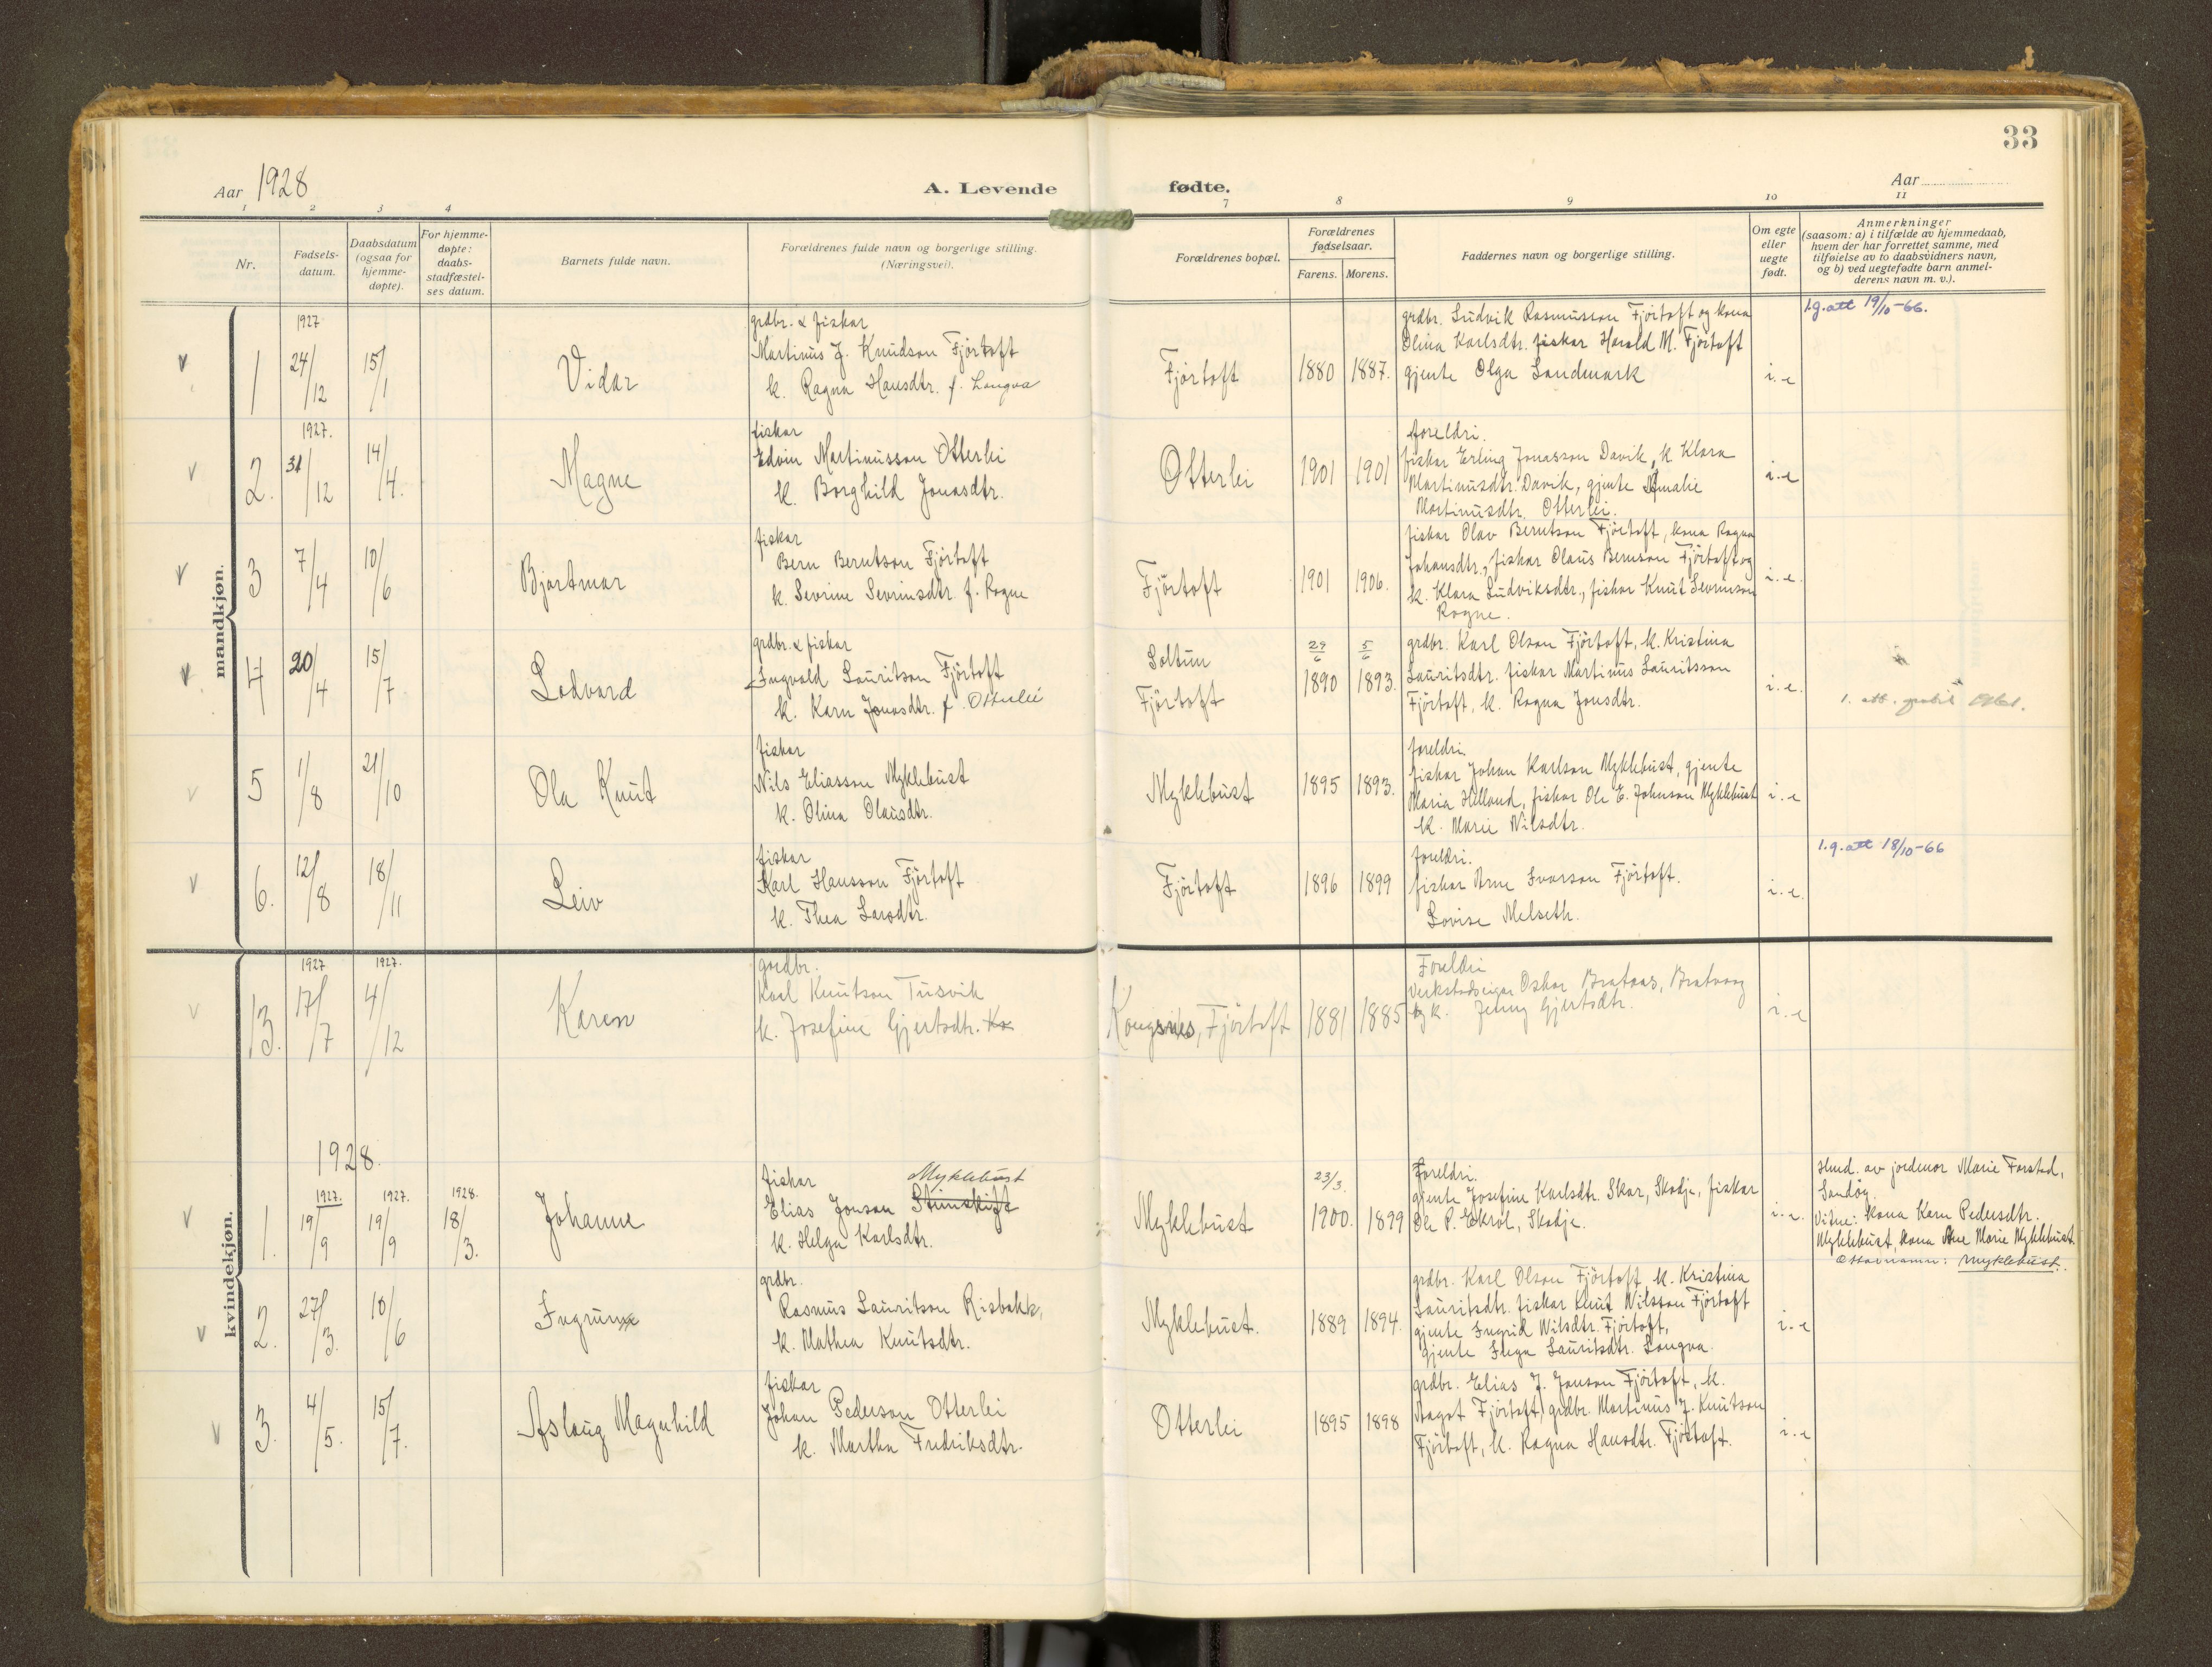 33
Aar 1928
A. Levende fødte.
Aar
1 2 3 4 7 8 9 10 11
Nr.
Fødsels-
datum.
Daabsdatum
(ogsaa for
hjemme-
døpte).
For hjemme-
døpte:
daabs-
stadfæstel-
ses datum.
Barnets fulde navn.
Forældrenes fulde navn og borgerlige stilling.
(Næringsvei).
Forældrenes bopæl.
Forældrenes
fødselsaar.
Farens. Morens.
Faddernes navn og borgerlige stilling.
Om egte
eller
uegte
født.
Anmerkninger
(saasom: a) i tilfælde av hjemmedaab,
hvem der har forrettet samme, med
tilføielse av to daabsvidners navn,
og b) ved uegtefødte barn anmel-
derens navn m. v.).
mandkjøn.
1
1927
24/12
15/1
Vidar
grdbr. & fiskar
Martinus J. Knudson Fjörtoft
k. Ragna Hansdtr. f. Longva
Fjörtoft
1880 1887.
grdbr. Ludvik Rasmusson Fjörtoft og kona
Olina Karlsdtr. fiskar Harald M. Fjörtoft
gjente Olga Landmark
i.-e
l.g.att 19/10-66.
2.
1927.
31/12
14/4.
Magne
fiskar
Edvin Martinusson Otterlei
k. Borghild Jonasdtr.
Otterlei
1901 1901
foreldri.
fiskar Erling Jonasson Davik, k. Klara
Martinusdtr. Davik, gjente Amalie
Martinusdtr. Otterlei.
i.-e
3
7/4
10/6
Bjartmar
fiskar
Bern Berntson Fjörtoft
k. Sevrine Sevrinsdtr f. Rogne
Fjörtoft
1901 1906.
fiskar Olav Berntson Fjörtoft, kona Ragna
Johansdtr., fiskar Olaus Bernson Fjörtoft og
k. Klara Ludviksdtr., fiskar Knut Sevrinson
Rogne.
i.-e.
4
20/4
15/7
Lodvard
grdbr. & fiskar
Ingvald Lauritson Fjörtoft
k. Karn Jonasdtr. f. Otterlei
Soltun
Fjörtoft
29/6 5/6
1890 1893.
grdbr. Karl Olson Fjörtoft, k. Kristina
Lauritsdtr. fiskar Martinus Lauritsson
Fjörtoft, k. Ragna Jonsdtr.
i.-e.
1. att.
5
1/8
21/10
Ola Knut
fiskar
Nils Eliasson Myklebust
k. Olina Olausdtr.
Myklebust
1895 1893.
foreldri.
fiskar Johan Karlson Myklebust, gjente
Maria Helland, fiskar Ole E. Johnson Myklebust
k. Marie Nilsdtr.
i.-e
6.
12/8
18/11
Leiv
fiskar
Karl Hansson Fjörtoft
k. Thea Larsdtr.
Fjörtoft
1896 1899
foreldri.
fiskar Arne Ivarson Fjörtoft.
Lovise Melseth.
i.-e.
l.g.att 18/10-66
kvindekjøn.
13.
1927
17/7
1927.
4/12
Karen
gardbr.
Karl Knutson Tusvik
k. Josefine Gjertsdtr.
Kongsnes, Fjörtoft
1881 1885
Foreldri
Verkstadseigar Oskar Brataas, Bratvaag
k. Jenny Gjertsdtr.
i.-e
1928.
1.
1927.
19/9
1927.
19/9
1928.
18/3.
Johanne
fiskar
Myklebust
Elias Jonson Stimskift
k. Helga Karlsdtr.
Myklebust
23/3.
1900. 1899
Foreldri.
gjente Josefine Karlsdtr. Skar, Skodje, fiskar
Ole P. Ekrol, Skodje.
i.-e.
Hmd. av jordmor Marie Farstad,
Sandöy.
Vitne: kona Karn Pedersdtr.
Myklebust, kona Ane Marie Myklebust
Ættarnamn: Myklebust.
2.
27/3.
10/6
Ingrun
grdbr.
Rasmus Lauritson Risbakk,
k. Mathea Knutsdtr.
Myklebust.
1889 1894.
grdbr. Karl Olson Fjörtoft, k. Kristina
Lauritsdtr. fiskar Knut Nilsson Fjörtoft
gjente Ingrid Nilsdtr. Fjörtoft,
gjente Inga Lauritsdtr. Longva.
i.-e
3.
4/5.
15/7.
Aslaug Magnhild
fiskar
Johan Pederson Otterlei
k. Martha Fredriksdtr.
Otterlei
1895 1898
grdbr. Elias J. Jonson Fjörtoft, k.
Aagot Fjörtoft, grdbr. Martinus J. Knutson
Fjörtoft, k. Ragna Hansdtr. Fjörtoft.
i.-e